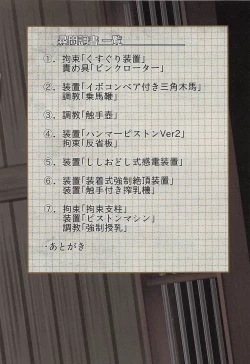 尋問調書一覧
①．拘束「くすぐり装置」
責め具「ピンクローター」
②．装置「イボコンベア付き三角木馬」
調教「乗馬鞭」
③．調教「触手壺」
④．装置「ハンマーピストンVer2」
拘束「反省板」
⑤．装置「ししおどし式感電装置」
⑥．装置「装着式強制絶頂装置」
装置「触手付き搾乳機」
⑦．拘束「拘束支柱」
装置「ピストンマシン」
調教「強制授乳」
・あとがき